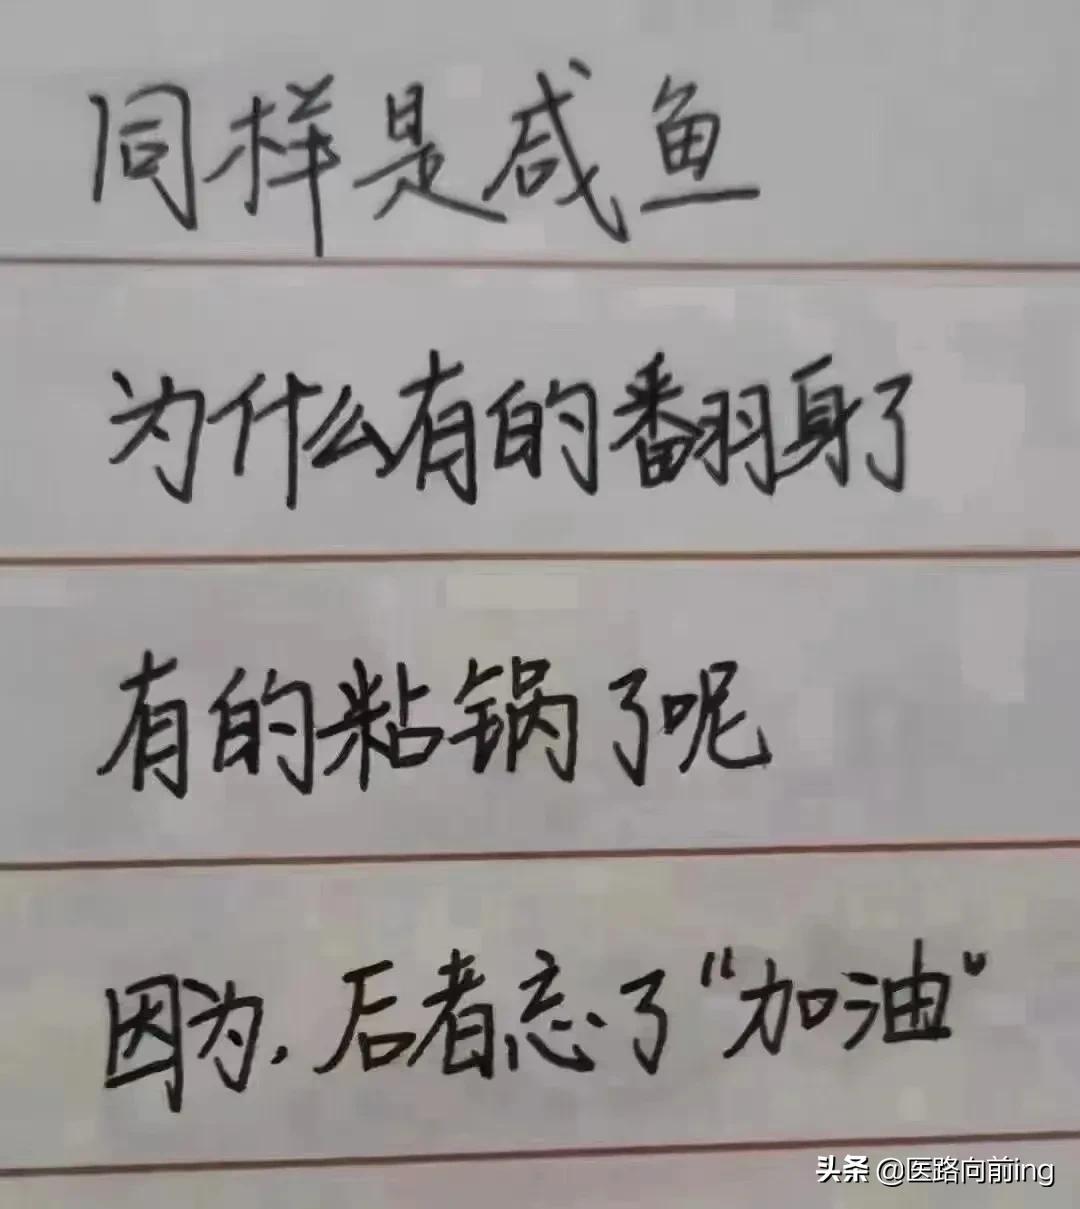 同样是咸鱼
为什么有的翻身了
有的粘锅了呢
因为,后者忘了“加油”
头条 @医路向前ing